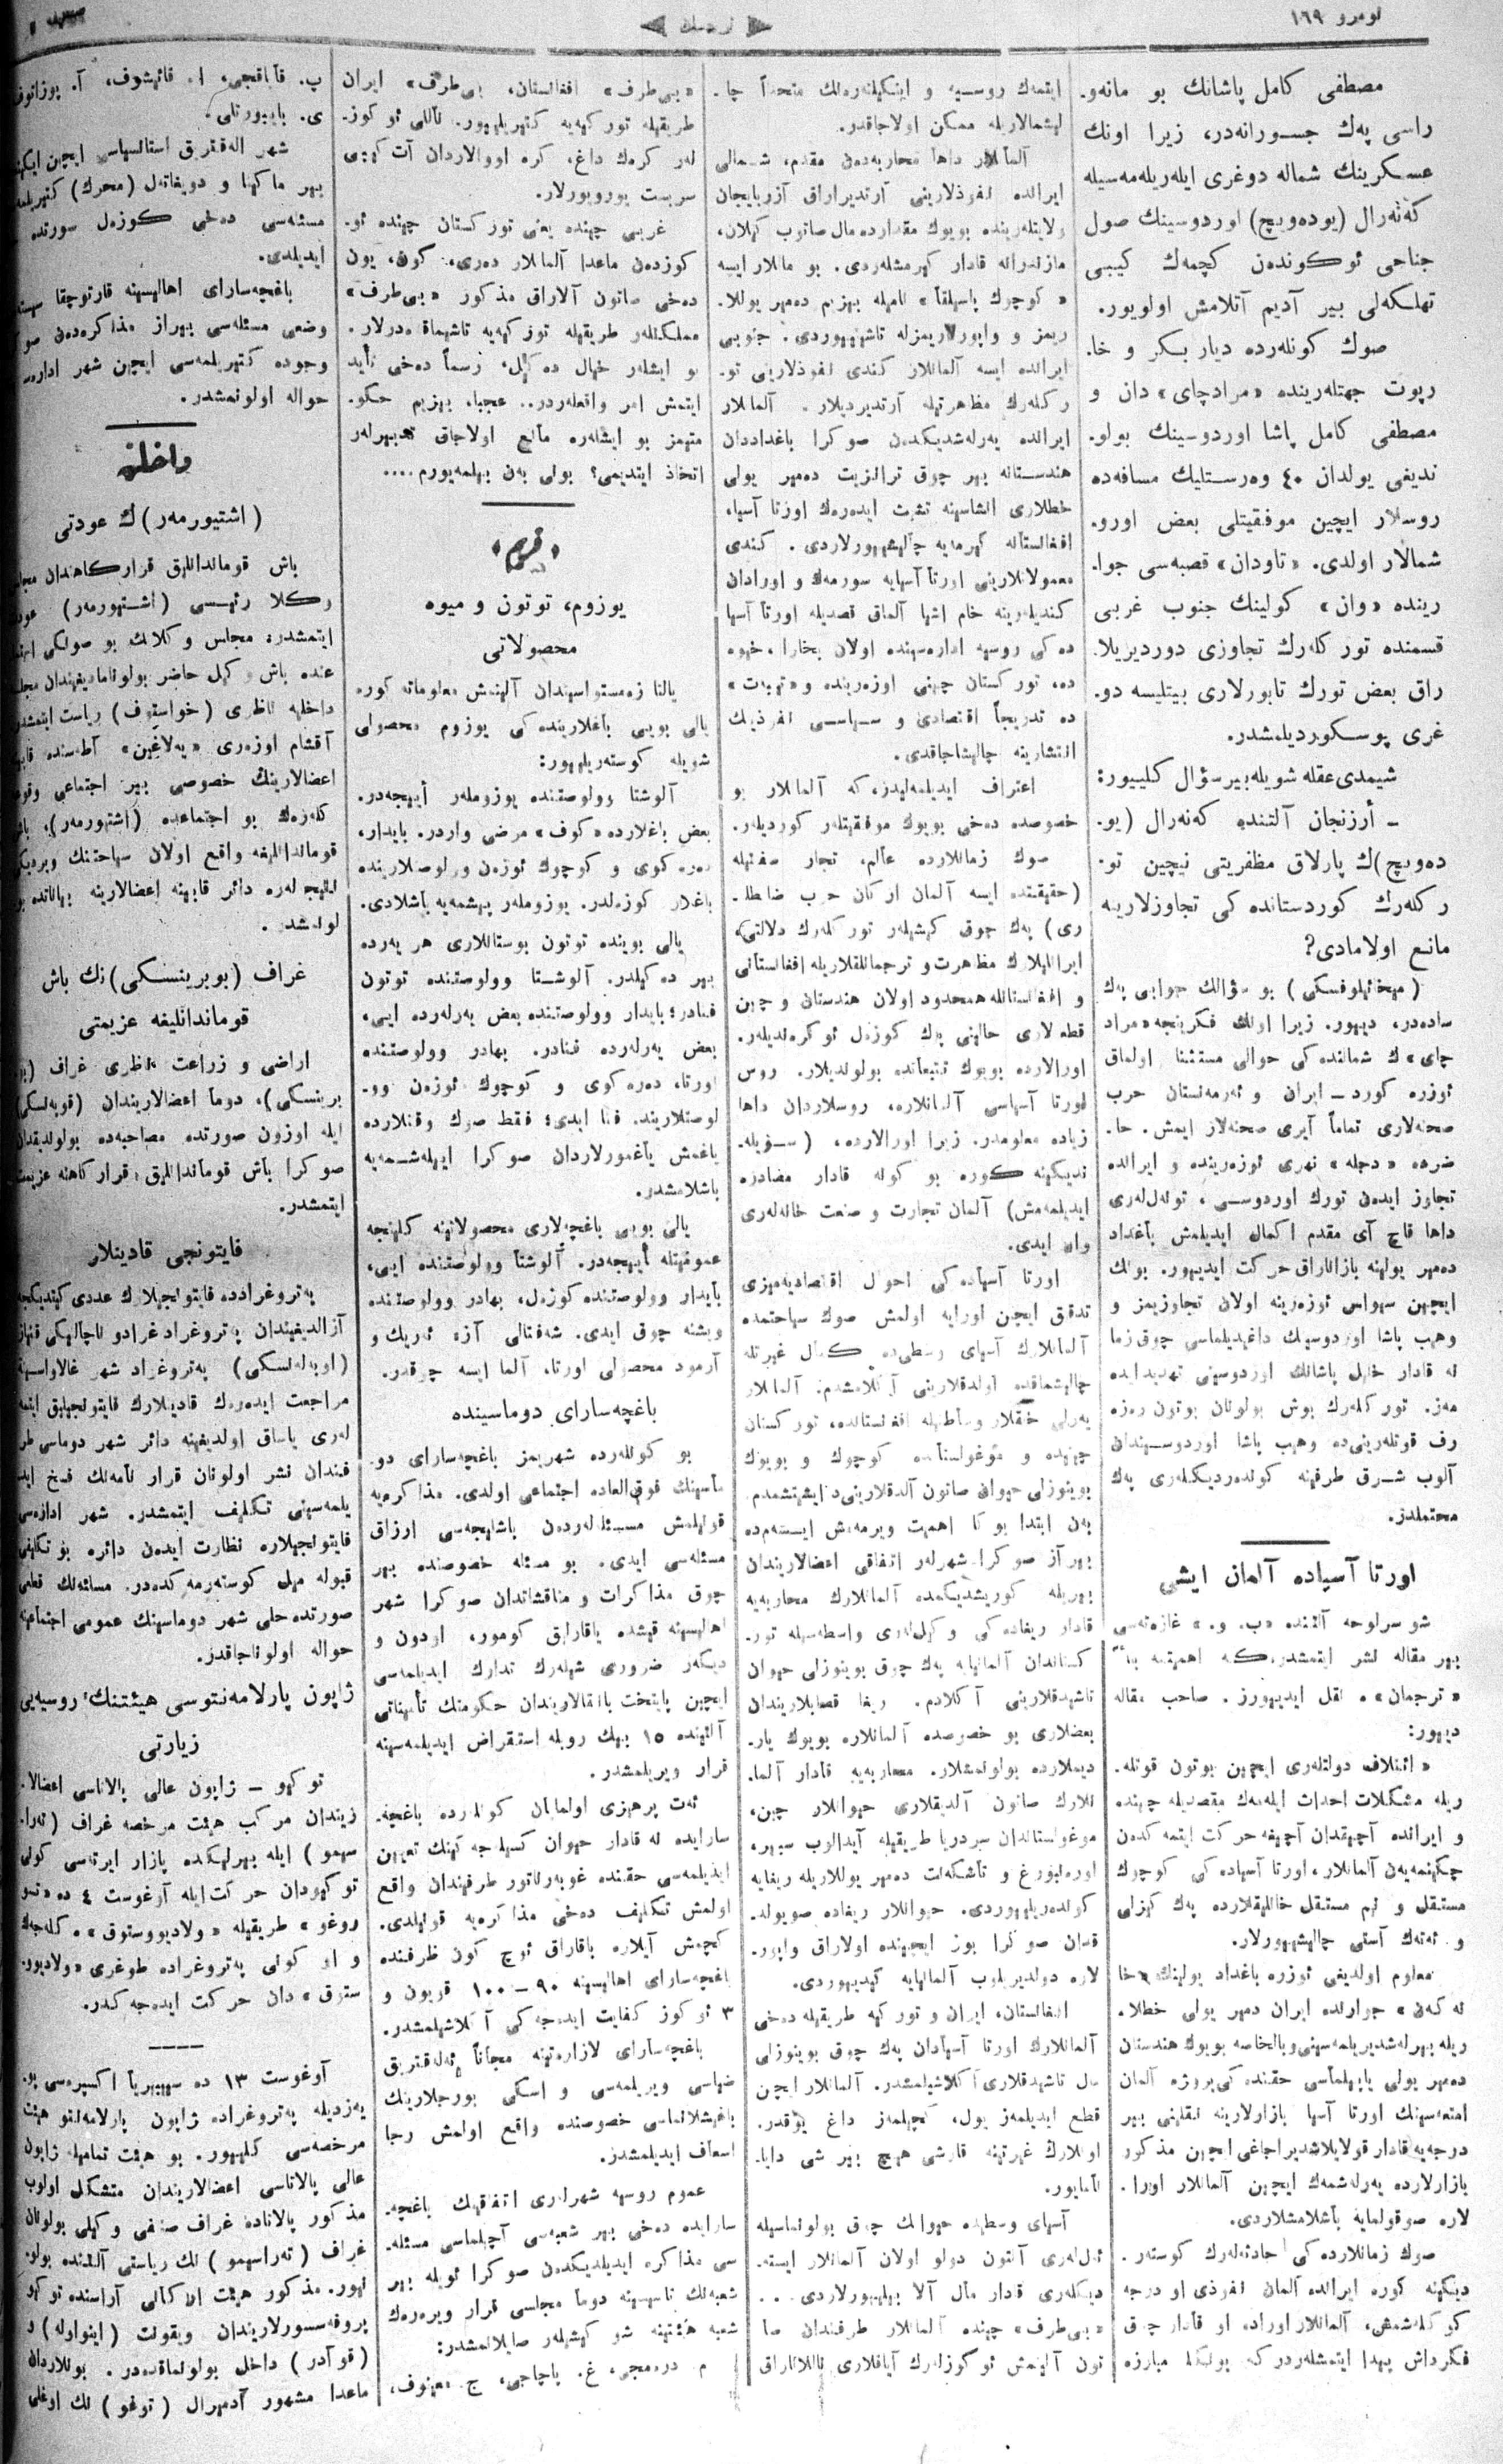 نومرو ١٦٩
ترجمان
مصطفی كامل پاشانك بو مانه‌و‌-
راسی په‌ك جسورانه‌در، زیرا اونك
عسكرینك شماله دوغری ایله‌ریله‌مه‌سیله
كه‌نه‌رال (یوده‌ویچ) اوردوسینك صول
جناحی ئوكوندن كچمه‌ك كیبی
تهلكه‌لی بیر آدیم آتلامش اولویور.
صوك كونله‌رده دیار بكر و خا-
رپوت جهتله‌رینده «مرادچای» دان و
مصطفی كامل پاشا اوردوسینك بولو-
ندیغی یولدان ٤٠ وه‌رستلیك مسافه‌ده
روسلار ایچین موفقیتلی بعض اورو-
شمالار اولدی. «تاودان» قصبه‌سی جوا-
رینده «وان» كولینك جنوب غربی
قسمنده توركله‌رك تجاوزی دوردیریلا-
راق بعض تورك تابورلاری بیتلیسه دو-
غری پوسكوردیلمشدر.
شیمدی عقله شویله بیر سؤال كلییور:
ـ أرزنجان آلتنده كه‌نه‌رال (یو-
ده‌ویچ)ك پارلاق مظفریتی نیچین تو-
ركله‌رك كوردستانده كی تجاوزلارینه
مانع اولامادی؟
(میخائیلوفسكی) بو سؤالك جوابی په‌ك
ساده‌در، دییور. زیرا اونك فكرینجه «مراد
چای» ك شمالنده كی حوالی مستثنا اولماق
ئوزره كورد ـ ایران و ئه‌رمه‌نستان حرب
صحنه‌لاری تماماً آیری صحنه‌لار ایمش. حا-
ضرده «دجله» نهری ئوزه‌رینده و ایرانده
تجاوز ایده‌ن تورك اوردوسی، تونه‌لله‌ری
داها قاچ آی مقدم اكمال ایدیلمش باغداد
ده‌میر یولینه بازاناراق حركت ایدییور. بونك
ایچین سیواس ئوزه‌رینه اولان تجاوزیمز و
وهیب پاشا اوردوسینك داغیدیلماسی چوق زما
نه قادار خلیل پاشانك اوردوسینی تهدید ایده
مه‌ز. توركله‌رك بوش بولونان بوتون ره‌زه
رف قوتله‌رینی‌ده وهیب پاشا اوردوسیندان
آلوب شرق طرفینه كونده‌ردیكله‌ری په‌ك
محتملدر.
اورتا آسیاده آلمان ایشی
شو سرلوحه آلتنده «ب. و.» غازه‌ته‌سی
بیر مقاله نشر ایتمشدر،
«ترجمان» ه نقل ایدییورز. صاحب مقاله
دییور:
«ائتلاف دولتله‌ری ایچین بوتون قوتله-
ریله مشكلات احداث ایله‌مه‌ك مقصدیله چینده
و ایرانده آچیقدان آچیغه حركت ایتمه كدن
چكینمه‌یه‌ن آلمانلار، اورتا آسیاده كی كوچوك
مستقل و نیم مستقل خانلیقلارده په‌ك كیزلی
و ئه‌ته‌ك آستی چالیشییورلار.
معلوم اولدیغی ئوزره باغداد یولینك «خا
نه كه‌ن» جوارنده ایران دمیر یولی خطلا-
ریله بیرله‌شدیریلمه‌سینی و بالخاصه بویوك هندستان
ده‌میر یولی یاپیلماسی حقنده كی پروژه آلمان
امتعه‌سینك اورتا آسیا بازارلارینه نقلینی بیر
درجه‌یه قادار قولایلاشدیراجاغی ایچین مذكور
بازارلارده یه‌رله‌شمه‌ك ایچین آلمانلار اورا-
لاره صوقولمایه باشلامشلاردی.
صوك زمانلارده كی حادثه‌له‌رك كوسته‌ر-
دیكینه كوره ایرانده آلمان نفوذی او درجه
كوكله‌شمش، آلمانلار اوراده او قادار چوق
فكرداش پیدا ایتمشله‌ردر كه بونكله مبارزه
ایتمه‌ك روسیه و اینكیلته‌ره‌نك متحداً چا-
لیشمالاریله ممكن اولاجاقدر.
آلمانلار داها محاربه‌دن مقدم، شمالی
ایرانده نفوذلارینی آرتدیراراق آزربایجان
ولایتله‌رینده بویوك مقدارده مال صاتوب كیلان،
مازندرانه قادار كیرمشله‌ردی. بو مالار ایسه
«كوچوك پاسیلقا» نامیله بیزیم ده‌میر یوللا-
ریمز و واپورلاریمزله تاشینییوردی. جنوبی
ایرانده ایسه آلمانلار كندی نفوذلارینی تو-
ركله‌رك مظاهرتیله آرتدیردیلار. آلمانلار
ایرانده یه‌رله‌شدیكدن صوكرا باغداددان
هندستانه بیر چوق ترانزیت ده‌میر یولی
خطلاری انشاسینه تشبث ایده‌ره‌ك اورتا آسیا،
افغانستانه كیرمه‌یه چالیشییورلاردی. كندی
معمولاتلارینی اورتا آسیایه سورمه‌ك و اورادان
كندیله‌رینه خام اشیا آلماق قصدیله اورتا آسیا
ده كی روسیه اداره‌سینده اولان بخارا، خیوه
ده، توركستان چینی اوزه‌رینده و «تیبت»
ده تدریجاً اقتصادی و سیاسی نفوذینك
انتشارینه چالیشاجاقدی.
اعتراف ایدیلمه‌لیدر، كه آلمانلار بو
خصوصده دخی بویوك موفقیتله‌ر كوردیله‌ر.
صوك زمانلارده عالم، تجار صفتیله
(حقیقتده ایسه آلمان اركان حرب ضابطلا-
ری) په‌ك چوق كیشیله‌ر توركله‌رك دلالتی،
ایرانلیلارك مظاهرت و ترجمانلقلاریله افغانستانی
و افغانستانله همحدود اولان هندستان و چین
قطعه‌لاری حالینی په‌ك كوزه‌ل ئوكره‌ندیله‌ر.
اورالارده بویوك تتبعاتده بولوندیلار. روس
اورتا آسیاسی آلمانلاره، روسلاردان داها
زیاده معلومدر. زیرا اورالارده، (سویله-
ندیكینه كوره بو كونه قادار مصادره
ایدیلمه‌مش) آلمان تجارت و صنعت خانه‌له‌ری
وار ایدی.
اورتا آسیاده كی احوال اقتصادیه‌میزی
تدقیق ایچین اورایه اولمش صوك سیاحتمده
آلمانلارك آسیای وسطی‌ده كمال غیرتله
چالیشماقده اولدقلارینی آكلامشدم. آلمانلار
یه‌رلی خلقلار وساطتیله افغانستانده، توركستان
چینیده و موغولستانده كوچوك و بویوك
بوینوزلی حیوان صاتون آلدقلارینی‌ده ایشیتشدم.
به‌ن ابتدا بوكا اهمیت ویرمه‌مش ایسه‌م‌ده
بیر آز صوكرا شهرله‌ر اتفاقی اعضالاریندان
بیریله كوریشدیكمده آلمانلارك محاربه‌یه
قادار ریغاده كی وكیلله‌ری واسطه‌سیله تور-
كستاندان آلمانیایه په‌ك چوق بوینوزلی حیوان
تاشیدقلارینی آكلادم. ریغا قصابلاریندان
بعضلاری بو خصوصده آلمانلاره بویوك یار-
دیملارده بولونمشلار. محاربه‌یه قادار آلما-
نلارك صاتون آلدیقلاری حیوانلار چین،
موغولستاندان سیردریا طریقیله آیدالوب سیبیر،
اوره‌نبورغ و تاشكه‌ند ده‌میر یوللاریله ریغایه
كونده‌ریلییوردی. حیوانلار ریغاده صویولد-
قدان صوكرا بوز ایچینده اولاراق واپور-
لاره دولدیریلوب آلمانیایه كیدییوردی.
افغانستان، ایران و توركیه طریقیله دخی
آلمانلارك اورتا آسیادان په‌ك چوق بوینوزلی
مال تاشیدقلاری آكلاشیلمشدر. آلمانلار ایچین
قطع ایدیلمه‌ز یول، كچیلمه‌ز داغ یوقدر.
اونلارك غیرتینه قارشی هیچ بیر شی دایا-
نامایور.
آسیای وسطی‌ده حیوانك چوق بولونماسیله
ئه‌لله‌ری آلتون دولو اولان آلمانلار ایسته-
دیكله‌ری قادار مال آلا بیلییورلاردی...
«بی‌طرف» چینده آلمانلار طرفندان صا
تون آلینمش ئوكوزله‌رك آیاقلاری ناللاناراق
«بی‌طرف» افغانستان، بی‌طرف» ایران
طریقیله توركیه‌یه كتیریلییور. ناللی ئوكوز-
له‌ر كره‌ك داغ، كره اووالاردان آت كیبی
سربست یورویورلار.
غربی چینده یعنی توركستان چینده ئو-
كوزدن ماعدا آلمانلار ده‌ری، كون، یون
دخی صاتون آلاراق مذكور «بی‌طرف»
مملكتله‌ر طریقیله توركیه‌یه تاشیماقده‌درلار.
بو ایشله‌ر خیال ده‌كیل، رسماً دخی تأیید
ایتمش امر واقعله‌ردر.. عجبا، بیزیم حكو-
متیمز بو ایشله‌ره مانع اولاجاق تدبیرله‌ر
اتخاذ ایتدیمی؟ بونی به‌ن بیلمه‌یورم....
«قریم»
یوزوم، توتون و میوه
محصولاتی
یالتا زه‌مستواسیندان آلینمش معلوماته كوره
یالی بویی باغلارینده كی یوزوم محصولی
شویله كوسته‌ریلییور:
آلوشتا وولوصتنده یوزومله‌ر أییجه‌در.
بعض باغلارده «كوف» مرضی واردر. بایدار،
ده‌ره كوی و كوچوك ئوزه‌ن وولوصلارینده
باغلار كوزه‌لدر. یوزومله‌ر پیشمه‌یه باشلادی.
یالی بوینده توتون بوستانلاری هر یه‌رده
بیر ده‌كیلدر. آلوشتا وولوصتنده توتون
فنادر؛ بایدار وولوصتنده بعض یه‌رله‌رده ایی،
بعض یه‌رله‌رده فنادر. بهادر وولوصتنده
اورتا، ده‌ره كوی و كوچوك ئوزه‌ن وو-
لوصتلارینده فنا ایدی؛ فقط صوك وقتلارده
یاغمش یاغمورلاردان صوكرا اییله‌شمه‌یه
باشلامشدر.
یالی بویی باغچه‌لاری محصولاتینه كلینجه
عمومیتله أییجه‌در. آلوشتا وولوصتنده ایی،
بایدار وولوصتنده كوزه‌ل، بهادر وولوصتنده
ویشنه چوق ایدی. شه‌فتالی آز، ئه‌ریك و
آرمود محصولی اورتا، آلما ایسه چوقدر.
باغچه‌سارای دوماسینده
بو كونله‌رده شهریمز باغچه‌سارای دو-
ماسینك فوق‌العاده اجتماعی اولدی. مذاكره‌یه
قویلمش مسئله‌له‌ردن باشلیجه‌سی ارزاق
مسئله‌سی ایدی. بو مسئله خصوصنده بیر
چوق مذاكرات و مناقشاتدان صوكرا شهر
اهالیسینه قیشده یاقارلق كومور، اودون و
دیكه‌ر ضروری شیله‌رك تدارك ایدیلمه‌سی
ایچین پایتخت بانقالاریندان حكومتك تأمیناتی
آلتینده ١٥ بیك روبله استقراض ایدیلمه‌سینه
قرار ویریلمشدر.
ئه‌ت پرهیزی اولمایان كونلارده باغچه-
سارایده نه قادار حیوان كسیله‌جه كینك تعیین
ایدیلمه‌سی حقنده غوبه‌رناتور طرفیندان واقع
اولمش تكلیف دخی مذاكره‌یه قویلدی.
كچمش آیلاره باقاراق ئوچ كون ظرفنده
باغچه‌سارای اهالیسینه ٩٠ ـ ١٠٠ قویون و
٣ ئوكوز كفایت ایده‌جه كی آكلاشیلمشدر.
باغچه‌سارای لازاره‌تینه مجاناً ئه‌له‌قتریق
ضیاسی ویریلمه‌سی و اسكی بورجلارینك
باغیشلانماسی خصوصنده واقع اولمش رجا
اسعاف ایدیلمشدر.
عموم روسیه شهرله‌ری اتفاقینك باغچه-
سارایده دخی بیر شعبه‌سی آچیلماسی مسئله-
سی مذاكره ایدیلدیكدن صوكرا ئویله بیر
شعبه‌نك تاسیسینه دوما مجلسی قرار ویره‌ره‌ك
شعبه هیئتینه شو كیشیله‌ر صایلانمشدر:
م. دره‌مجی، غ. یاچاجی، ج.
پ. قاباقجی، ا. قائیشوف، آ. بوزاتوف
ی. بایبورتلی.
شهر اله‌قتریق استانسیاسی ایچین ایكینجی
بیر ماكینا و دویغاتل (محرك) كتیریلمه
مسئله‌سی دخی كوزه‌ل صورتده
ایدیلدی.
باغچه‌سارای اهالیسینه قارتوچقا سیسته
وضعی مسئله‌سی بیراز مذاكره‌دن صو
وجوده كتیریلمه‌سی ایچین شهر اداره‌سی
حواله اولونمشدر.
داخلیه
(اشتیورمه‌ر) ك عودتی
باش قوماندانلق قراركاهندان مجلس
وكلا رئیسی (اشتیورمه‌ر) عودت
ایتمشدر، مجلس وكلانك بو صوككی اجتما
عنده باش وكیل حاضر بولونامادیغیندان مجلسه
داخلیه ناظری (خواستوف) ریاست ایتمشدر
آقشام اوزه‌ری «یه‌لاغین» آطه‌سنده قابینه
اعضالارینك خصوصی بیر اجتماعی وقوع
كله‌ره‌ك بو اجتماعده (اشتیورمه‌ر)، باش
قوماندانلیغه واقع اولان سیاحتنك ویردیكی
نتیجه‌له‌ره دائر قابینه اعضالارینه بیاناتده بو
لونمشدر.
غراف (بوبرینسكی) نك باش
قوماندانلیغه عزیمتی
اراضی و زراعت ناظری غراف (بو
برینسكی)، دوما اعضالاریندان
ایله اوزون صورتده مصاحبه‌ده بولوندیقدان
صوكرا باش قوماندانلق قراركاهنه عزیمت
ایتمشدر.
فایتونجی قادینلار
په‌تروغرادده فایتونجیلارك عددی كیتدیكجه
آزالدیغیندان په‌تروغراد غرادوناچالنیكی قنیاز
(اوبه‌له‌نسكی) په‌تروغراد شهر غالاواسینه
مراجعت ایده‌ره‌ك قادینلارك فایتونجیلق ایتمه
له‌ری یاساق اولدیغینه دائر شهر دوماسی طر
فندان نشر اولونان قرار نامه‌نك فسخ ایدی
یلمه‌سینی تكلیف ایتمشدر. شهر اداره‌سی
فایتونجیلاره نظارت ایده‌ن دائره بو تكلیفی
قبوله میل كوسته‌رمه كده‌در. مسائله‌نك قطعی
صورتده حلی شهر دوماسینك عمومی اجتماعینه
حواله اولوناجاقدر.
ژاپون پارلامه‌نتوسی هیئتنك روسیه‌یی
زیارتی
توكیو ـ ژاپون عالی پالاتاسی اعضالا-
ریندان مركب هیئت مرخصه غراف (ته‌را-
سیمو) ایله بیرلیكده پازار ایرته‌سی كونی
توكیودان حركت ایله آوغوست ٤ ده «تسو
روغو» طریقیله «ولادیووستوق» ه كله‌جه‌ك
و او كونی په‌تروغراده طوغری «ولادیوو-
ستوق» دان حركت ایده‌جه كدر.
آوغوست ١٣ ده سیبیریا اكسپره‌سی پو-
یه‌زدیله په‌تروغراده ژاپون پارلامه‌نتو هیئت
مرخصه‌سی كلییور. بو هیئت تمامیله ژاپون
عالی پالاتاسی اعضالاریندان متشكل اولوب
مذكور پالاتاده غراف صنفی وكیلی بولونان
غراف (ته‌راسیمو) نك ریاستی آلتنده بولو-
نیور. مذكور هیئت اركانی آراسنده توكیو
پروفه‌سسورلاریندان ویقونت (اینواوله) و
(قوآدر) داخل بولونماقده‌در. بونلاردان
ماعدا مشهور آدمیرال (توغو) نك اوغلی